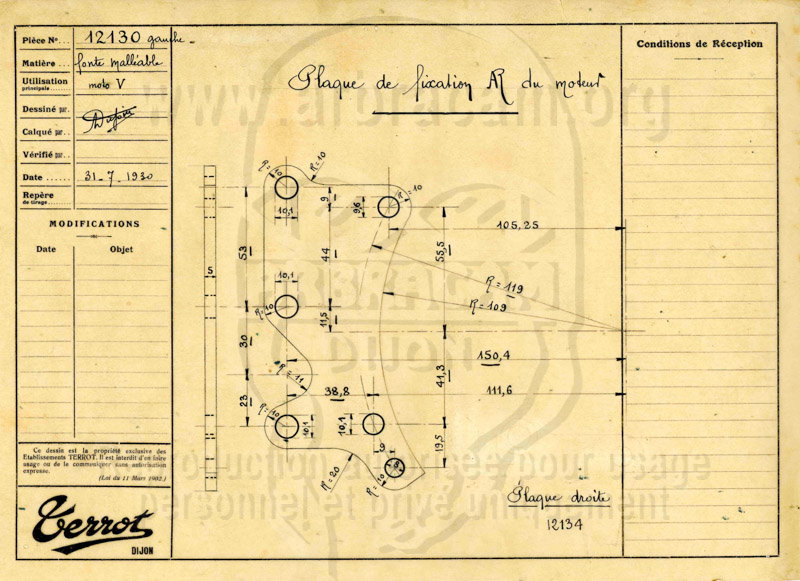 Pièce No... 12130 gauche
Matière... fonte malléable
Utilisation principale..... moto V
Dessiné par.
Calqué par..
Vérifié par..
Date...... 31-7-1930
Repère de tirage.......
MODIFICATIONS
Date Objet
Ce dessin est la propriété exclusive des
Etablissements TERROT. Il est interdit d'en faire
usage ou de le communiquer sans autorisation
expresse.
(Loi du 11 Mars 1902.)
Terrot
DIJON
Plaque de fixation AR du moteur
Conditions de Réception
R=10
R=10
R=10
9
9,6
10,1
105,25
53
44
55,5
5
10,1
R=119
R=109
R=10
11,5
30
150,4
R=11
38,8
41,3
111,6
23
R=10
10,1
10,1
19,5
9
8
R=20
R=10
Plaque droite
12134
www.arbracam.org
ARBRACAM
DIJON
reproduction autorisée pour usage
personnel et privé uniquement